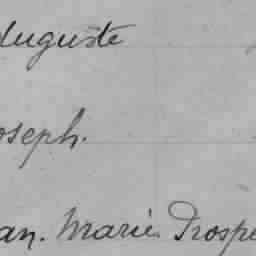 Auguste
oseph.
an. Marie Prospe